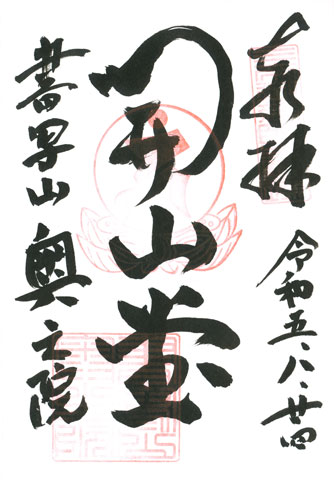 奉拝
令和五、八、廿四
開山堂
書写山 奥之院